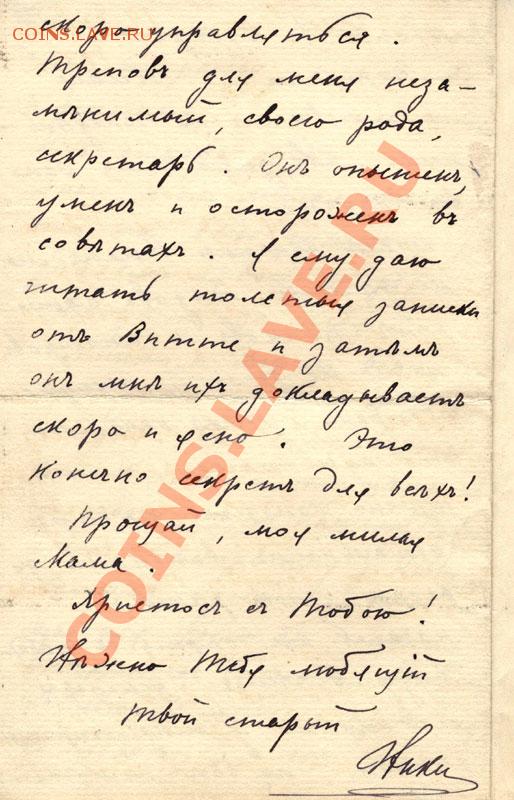 COINS.LAVE.RU
скоро управляться.
Треповъ для меня неза-
мѣнимый, своего рода,
секретарь. Онъ опытенъ,
уменъ и остороженъ въ
совѣтахъ. Я ему даю
читать толстыя записки
отъ Витте и затѣмъ
онъ мнѣ ихъ докладываетъ
скоро и ясно. Это
конечно секретъ для всѣхъ!
Прощай, моя милая
Мама.
Христосъ съ Тобою!
Нѣжно Тебя любящій
твой старый
Ники
COINS.LAVE.RU